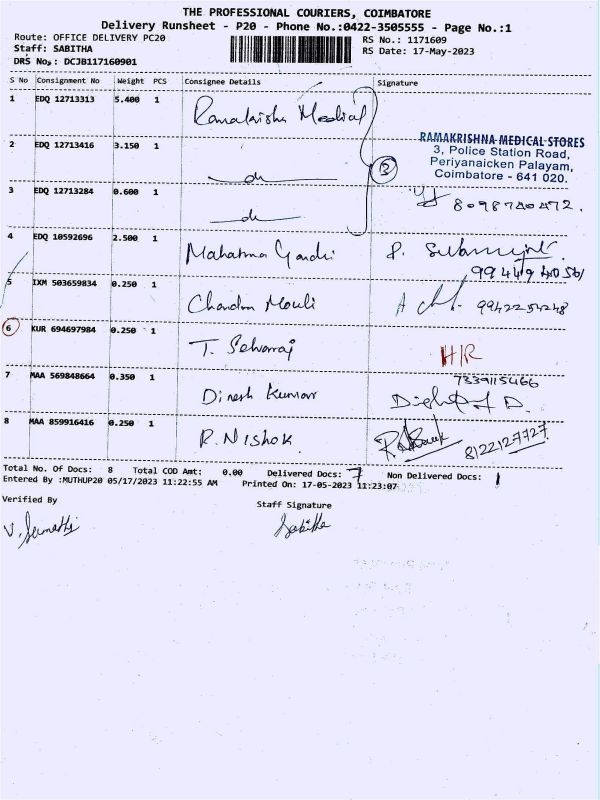 THE PROFESSIONAL COURIERS, COIMBATORE
Delivery Runsheet - P20 - Phone No.:0422-3505555 - Page No.:1
Route: OFFICE DELIVERY PC20 RS No.: 1171609
Staff: SABITHA RS Date: 17-May-2023
DRS No.: DCJB117160901
S No Consignment No Weight PCS Consignee Details Signature
1 EDQ 12713313 5.400 1 Ramakrishna Medical
2 EDQ 12713416 3.150 1 do
RAMAKRISHNA MEDICAL STORES
3, Police Station Road,
Periyanaicken Palayam,
Coimbatore - 641 020.
3 EDQ 12713284 0.600 1 do 8098740472.
4 EDQ 10592696 2.500 1 Mahatma Gandhi
5 IXM 503659834 0.250 1 Chandra Mouli 9942254248
6 KUR 694697984 0.250 1 T. Selvaraj H/R
7 MAA 569848664 0.350 1 Dinesh Kumar 7339115466
8 MAA 859916416 0.250 1 R. Nishok 8122127727
Total No. Of Docs: 8 Total COD Amt: 0.00 Delivered Docs: 7 Non Delivered Docs: 1
Entered By :MUTHUP20 05/17/2023 11:22:55 AM Printed On: 17-05-2023 11:23:07
Verified By Staff Signature
Sabitha